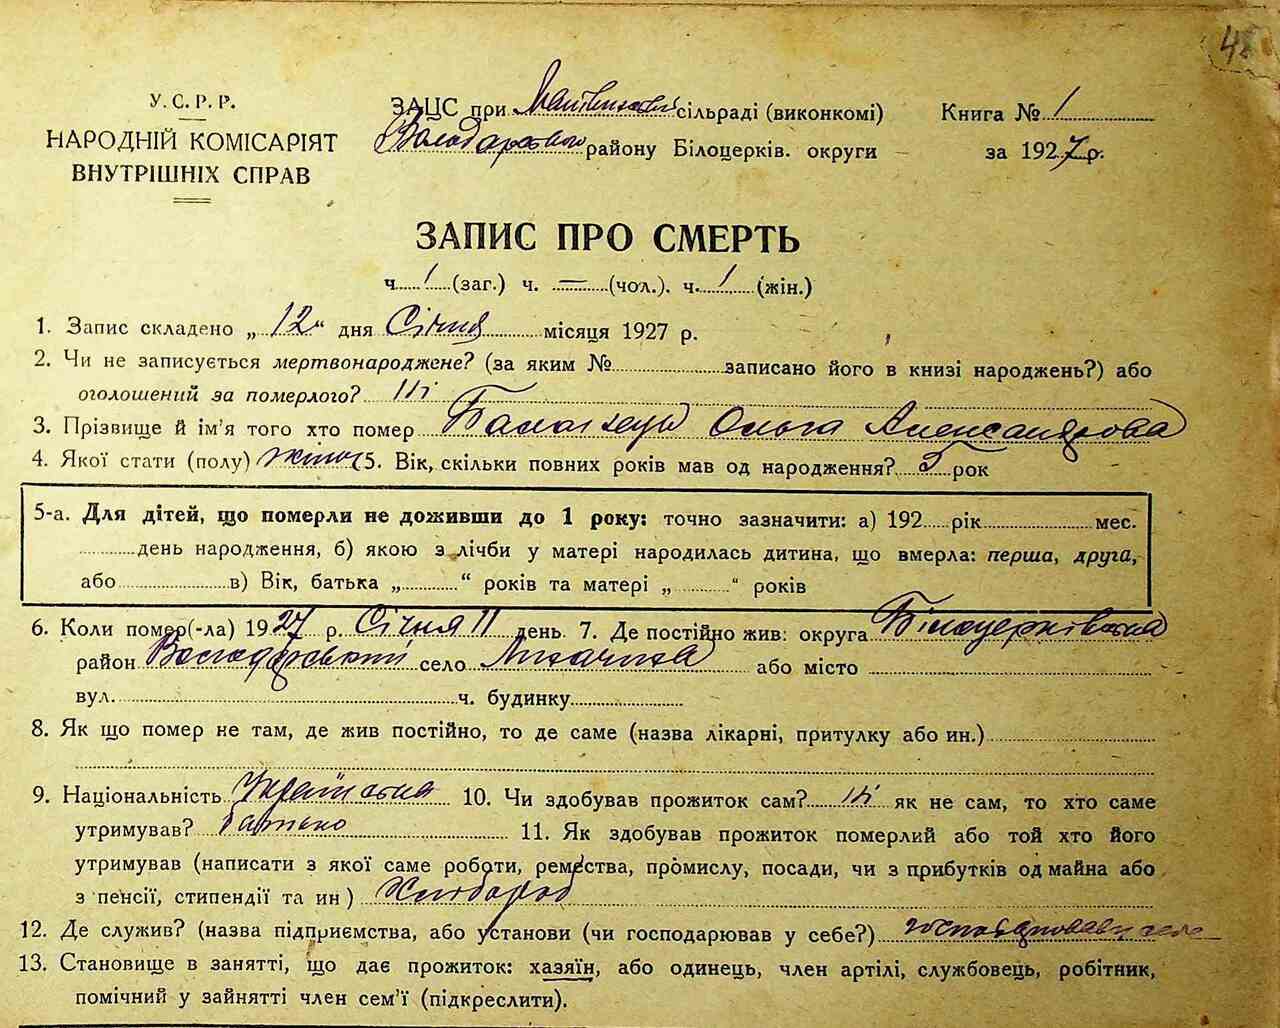 У.С.Р.Р.
НАРОДНІЙ КОМІСАРІЯТ
ВНУТРІШНІХ СПРАВ
ЗАЦС при сільраді (виконкомі)
Володарського району Білоцерків. округи
Книга № 1
за 1927 р.
ЗАПИС ПРО СМЕРТЬ
ч. 1 (заг.) ч. — (чол.). ч. 1 (жін.)
1. Запис складено „12“ дня Січня місяця 1927 р.
2. Чи не записується мертвонароджене? (за яким № записано його в книзі народжень?) або
оголошений за померлого? Ні
3. Прізвище й ім'я того хто помер Ольга Александрова
4. Якої стати (полу) жіноч 5. Вік, скільки повних років мав од народження? 5 рок
5-а. Для дітей, що померли не доживши до 1 року: точно зазначити: а) 192 рік мес.
день народження, б) якою з лічби у матері народилась дитина, що вмерла: перша, друга,
або в) Вік, батька „ “ років та матері „ “ років
6. Коли помер(-ла) 1927 р. Січня 11 день 7. Де постійно жив: округа Білоцерківська
район Володарський село або місто
вул. ч. будинку
8. Як що помер не там, де жив постійно, то де саме (назва лікарні, притулку або ин.)
9. Національність Українська 10. Чи здобував прожиток сам? ні як не сам, то хто саме
утримував? Батько 11. Як здобував прожиток померлий або той хто його
утримував (написати з якої саме роботи, ремества, промислу, посади, чи з прибутків од майна або
з пенсії, стипендії та ин) Хлібороб
12. Де служив? (назва підприємства, або установи (чи господарював у себе?)
13. Становище в занятті, що дає прожиток: хазяїн, або одинець, член артілі, службовець, робітник,
помічний у зайнятті член сем'ї (підкреслити).